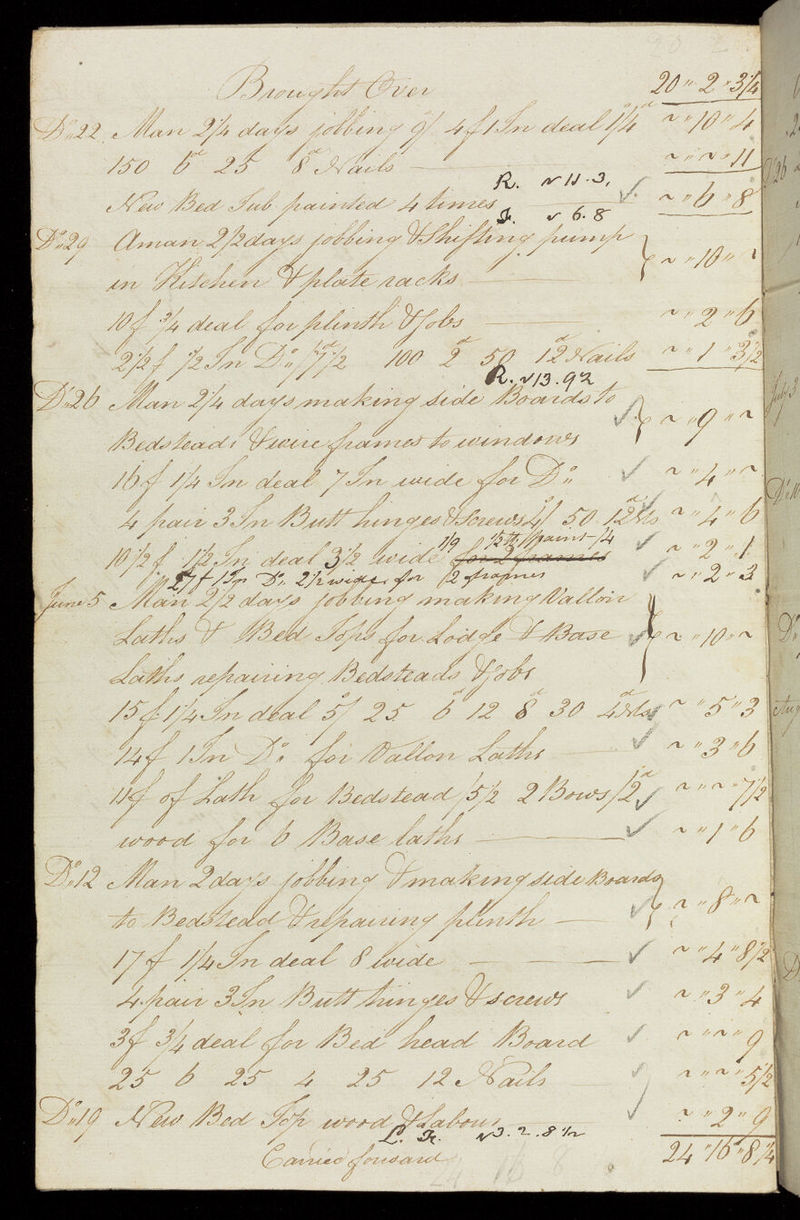 Brought Over 20 " 2 " 3¼
Do 22 Man 2¼ days jobbing 9/ 4 f 1 In deal 1/4 ~ " 10 " 4
150 6d 25 8d Nails ~ " ~ " 11
R. ~ 11 . 3.
New Bed Tub painted 4 times ~ " 6 " 8
F. ~ 6 . 8
Do 29 A man 2½ days jobbing & Shifting pump
in Kitchen & plate racks ~ " 10 " ~
10 f ¾ deal for plinth & Jobs ~ " 2 " 6
2½ f ½ In Do /7½ 100 2d 50 12d Nails ~ " 1 " 3½
R. ~ 13 . 9½
Do 26 Man 2¼ days making side Boards to
Bedsteads & wire frames to windows ~ " 9 " ~
16 f 1¼ In deal 7 In wide for Do ~ " 4 " ~
4 pair 3 In Butt hinges & screws 4/ 50 12d Nls ~ " 4 " 6
1/9 ½ lb paint /4
10½ f 1½ In deal 3½ wide for 2 frames ~ " 2 " 1
27 f 1 In Do 2½ wide for 2 frames ~ " 2 " 3
June 5 Man 2½ days jobbing making Vallon
Laths & Bed Tops for Lodge & Base ~ " 10 " ~
Laths repairing Bedsteads & Jobs
15 f 1¼ In deal 5/ 25 6d 12 8d 30 4d Nls ~ " 5 " 3
14 f 1 In Do for Vallon Laths ~ " 3 " 6
11 f of Lath for Bedstead /5½ 2 Bows /2d ~ " ~ " 7½
wood for 6 Base laths ~ " 1 " 6
Do 12 Man 2 days jobbing & making side Boards
to Bedstead & repairing plinth ~ " 8 " ~
17 f 1¼ In deal 8 wide ~ " 4 " 8½
4 pair 3 In Butt hinges & screws ~ " 3 " 4
3 f ¾ deal for Bed head Board ~ " ~ " 9
25 6 25 4 25 12 Nails ~ " ~ " 5½
Do 19 New Bed Top wood & Labour ~ " 2 " 9
L. F. ~ 3 . 2 . 8½
Carried forward 24 " 16 " 8¼
24 16 8